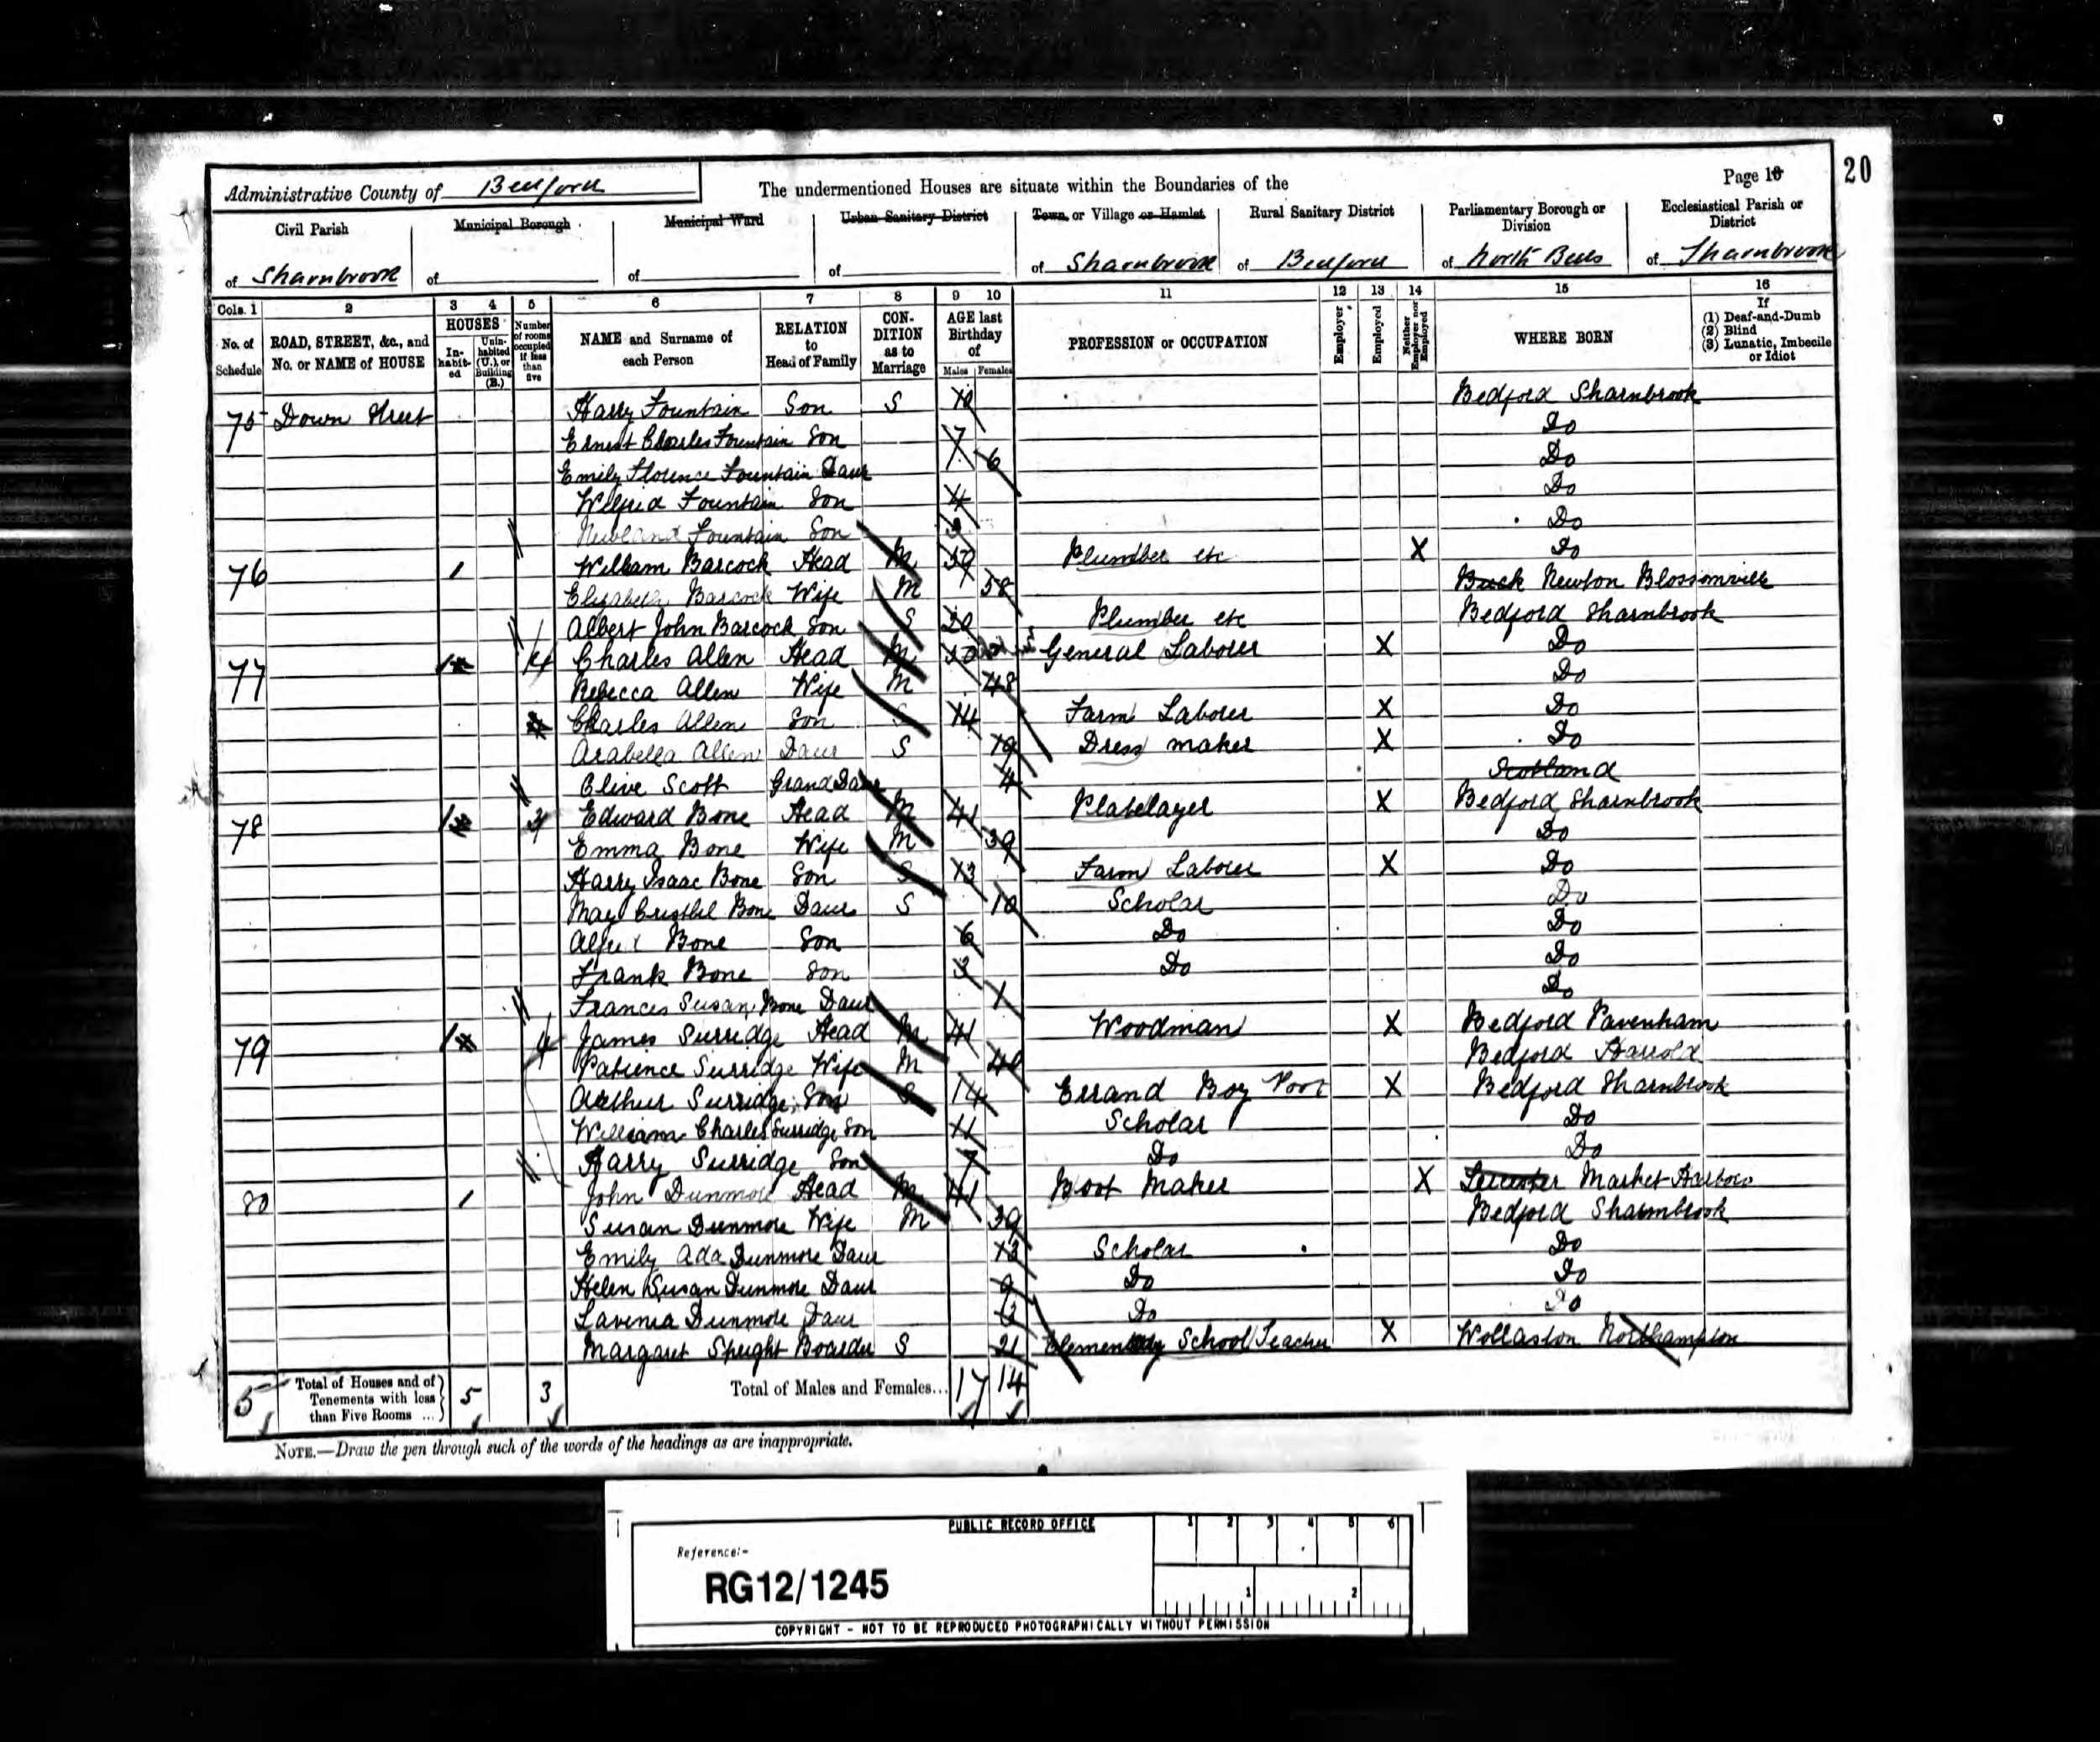 Administrative County of Bedford
The undermentioned Houses are situate within the Boundaries of the
Page 18
20
Civil Parish
of Sharnbrook
Municipal Borough
of
Municipal Ward
of
Urban Sanitary District
of
Town or Village or Hamlet
of Sharnbrook
Rural Sanitary District
of Bedford
Parliamentary Borough or Division
of North Beds
Ecclesiastical Parish or District
of Sharnbrook
Cols. 1 2 3 4 5 6 7 8 9 10 11 12 13 14 15 16
No. of Schedule
ROAD, STREET, &c., and No. or NAME of HOUSE
HOUSES
In-habit-ed
Unin-habited (U.), or Building (B.)
Number of rooms occupied if less than five
NAME and Surname of each Person
RELATION to Head of Family
CON-DITION as to Marriage
AGE last Birthday of
Males Females
PROFESSION or OCCUPATION
Employer
Employed
Neither Employer nor Employed
WHERE BORN
If
(1) Deaf-and-Dumb
(2) Blind
(3) Lunatic, Imbecile or Idiot
75 Down Street Harry Fountain Son S 10 Bedford Sharnbrook
Ernest Charles Fountain Son 7 Do
Emily Florence Fountain Daur 6 Do
Wilfrid Fountain Son 4 Do
Newland Fountain Son Do
76 1 William Barcock Head M 59 Plumber etc X Do
Elizabeth Barcock Wife M 58 Buck Newton Blossomville
Albert John Barcock Son S 20 Plumber etc Bedford Sharnbrook
77 1 4 Charles Allen Head M 50 General Laborer X Do
Rebecca Allen Wife M 48 Do
Charles Allen Son S 14 Farm Laborer X Do
Arabella Allen Daur S 19 Dress maker X Do
Olive Scott Grand Daur 4 Scotland
78 1 3 Edward Bone Head M 41 Platelayer X Bedford Sharnbrook
Emma Bone Wife M 39 Do
Harry Isaac Bone Son S 13 Farm Laborer X Do
May Bone Daur S 10 Scholar Do
Alfred Bone Son 6 Do Do
Frank Bone Son 3 Do Do
Frances Susan Bone Daur 1 Do
79 1 4 James Surridge Head M 41 Woodman X Bedford Pavenham
Patience Surridge Wife M 40 Bedford Harrold
Arthur Surridge Son S 14 Errand Boy X Bedford Sharnbrook
William Charles Surridge Son 11 Scholar Do
Harry Surridge Son 7 Do Do
80 1 John Dunmore Head M 41 Boot Maker X Leicester Market Harboro
Susan Dunmore Wife M 39 Bedford Sharnbrook
Emily Ada Dunmore Daur 13 Scholar Do
Helen Susan Dunmore Daur 9 Do Do
Lavinia Dunmore Daur Do Do
Margaret Speight Boarder S 21 Elementary School Teacher X Wollaston Northampton
5 Total of Houses and of Tenements with less than Five Rooms ... 5 3 Total of Males and Females... 17 14
NOTE.—Draw the pen through such of the words of the headings as are inappropriate.
PUBLIC RECORD OFFICE
1 2 3 4 5 6
Reference:-
RG12/1245
1 2
COPYRIGHT - NOT TO BE REPRODUCED PHOTOGRAPHICALLY WITHOUT PERMISSION